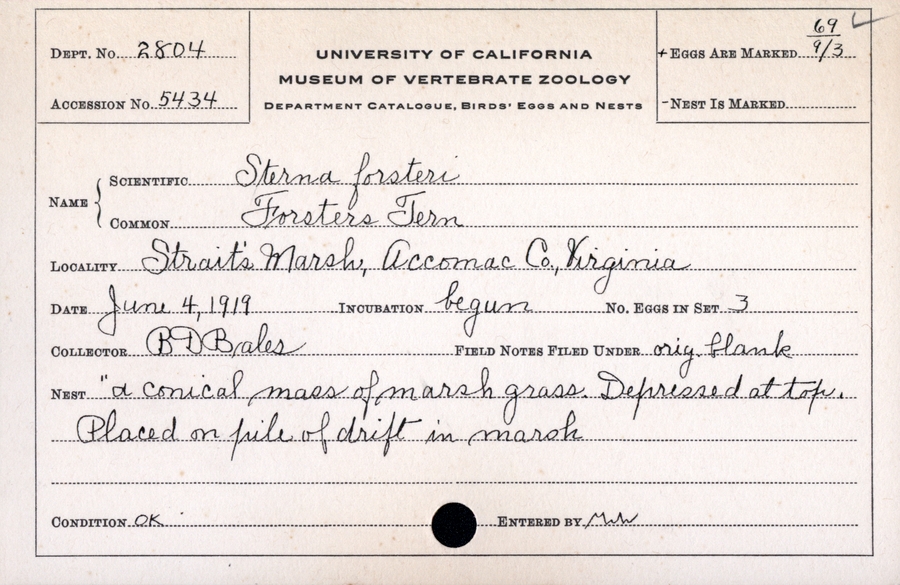 Dept. No. 2804
Accession No. 5434
UNIVERSITY OF CALIFORNIA
MUSEUM OF VERTEBRATE ZOOLOGY
Department Catalogue, Birds' Eggs and Nests
69
+Eggs Are Marked 9/3
-Nest Is Marked
Name { Scientific Sterna forsteri
Common Forsters Tern
Locality Strait's Marsh, Accomac Co., Virginia
Date June 4, 1919 Incubation begun No. Eggs in Set 3
Collector BDBales Field Notes Filed Under orig. blank
Nest "a conical mass of marsh grass. Depressed at top.
Placed on pile of drift in marsh
Condition OK Entered by